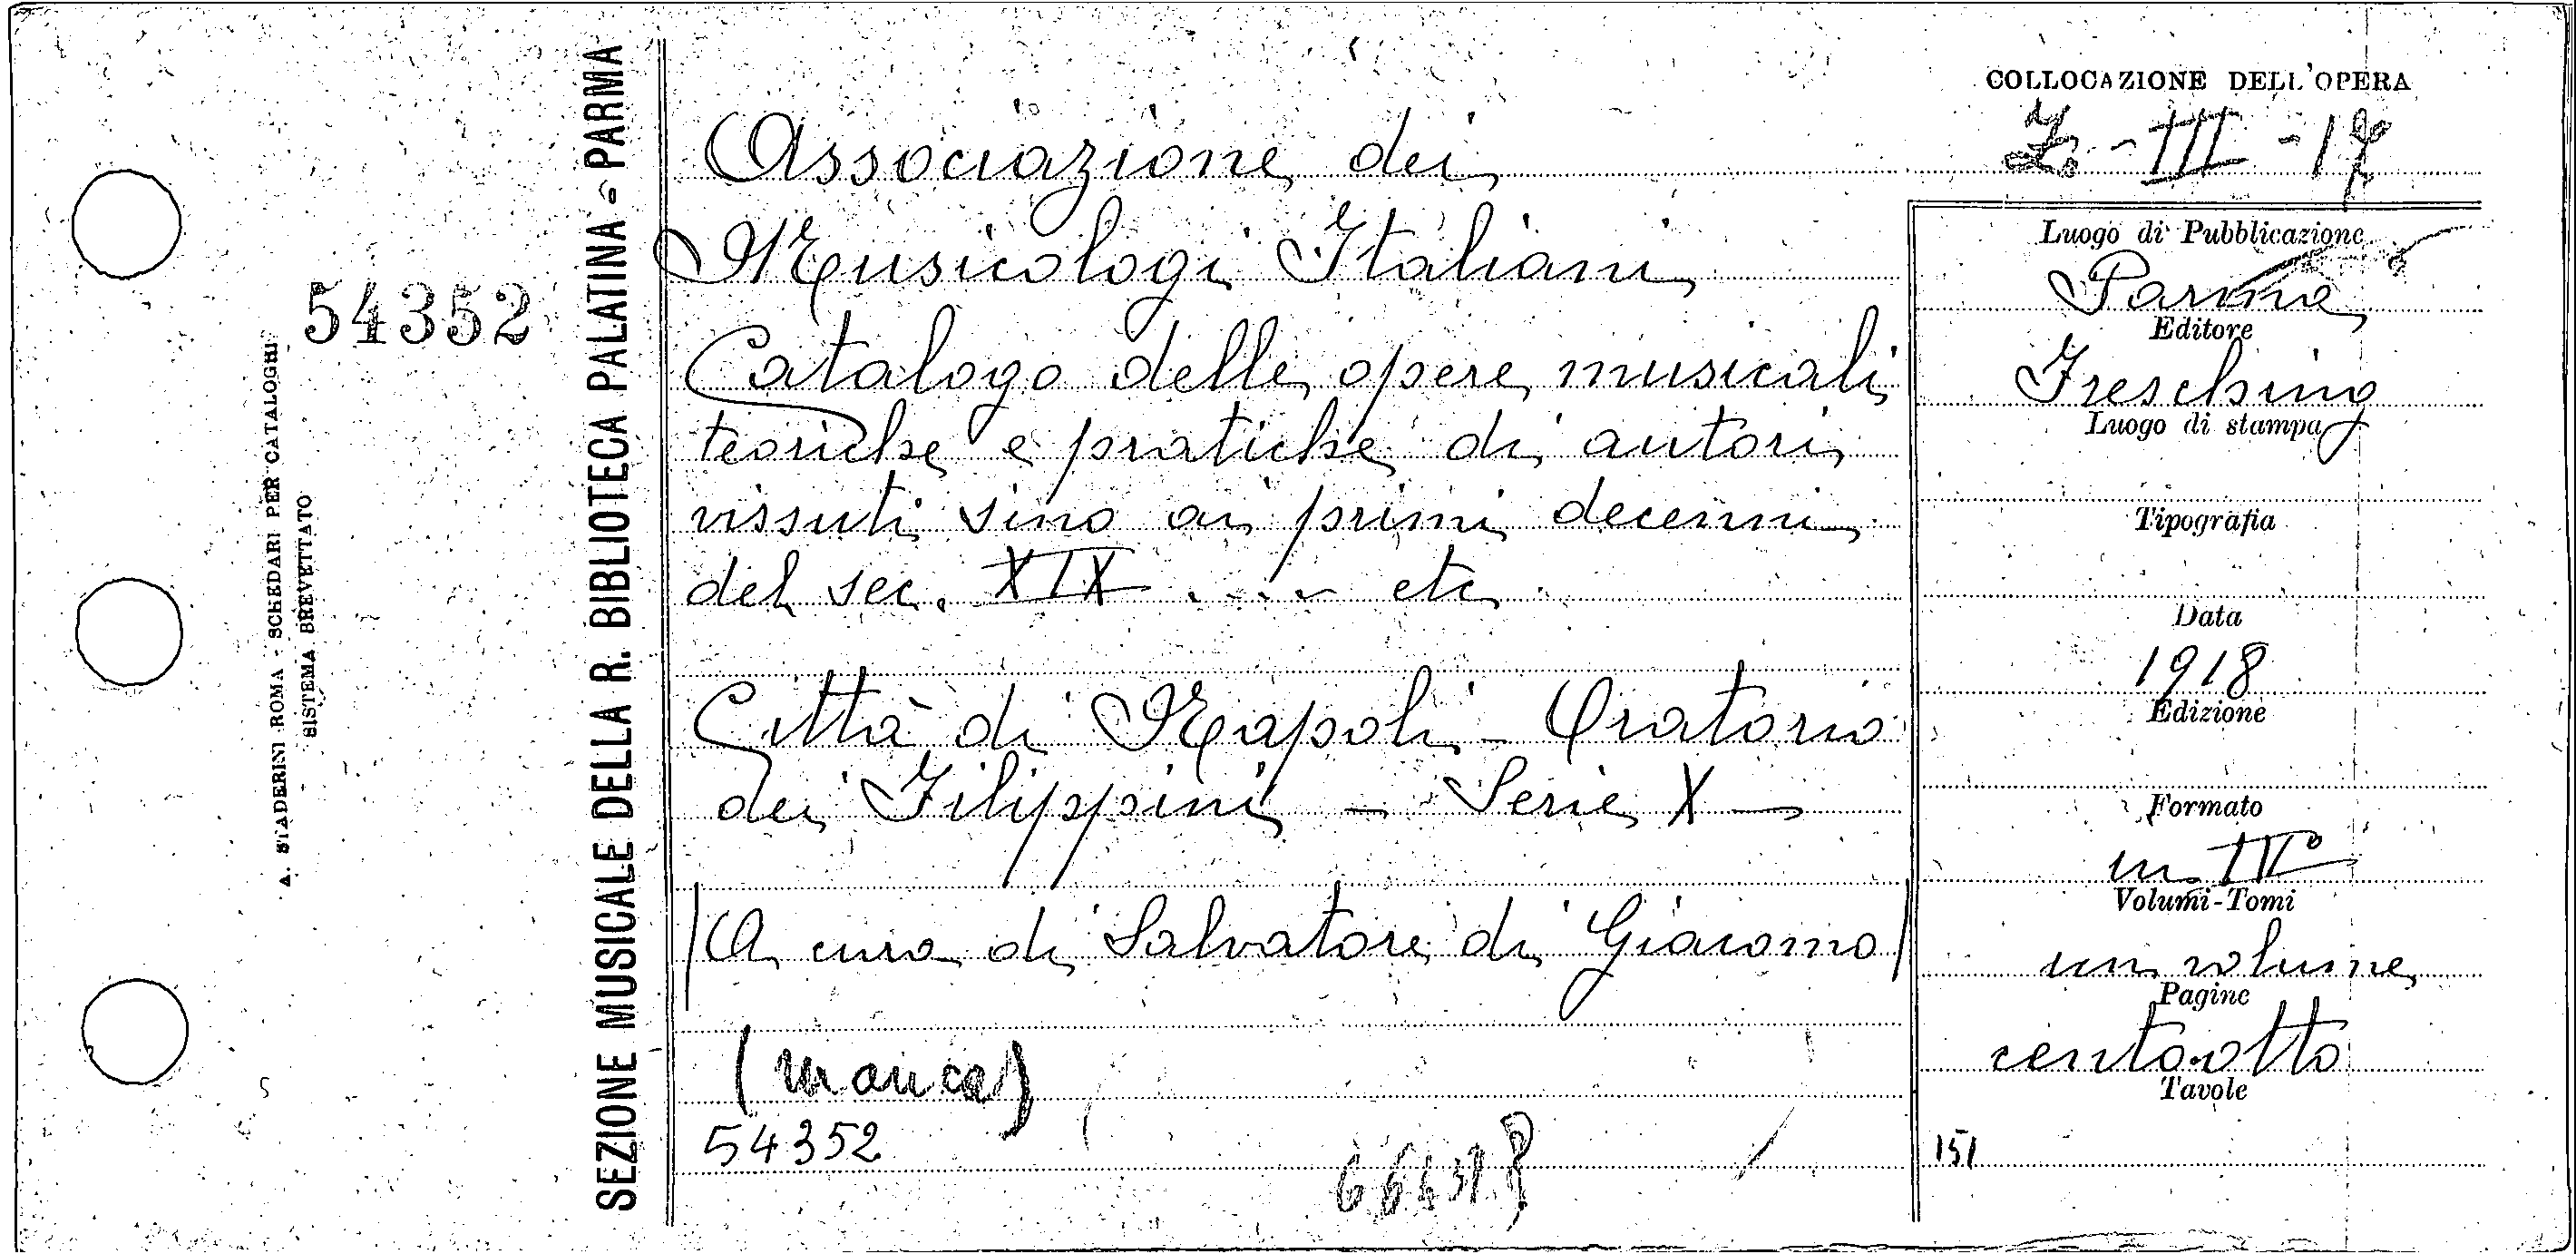 54352
A. STADERINI - ROMA - SCHEDARI PER CATALOGHI
SISTEMA BREVETTATO
SEZIONE MUSICALE DELLA R. BIBLIOTECA PALATINA - PARMA
Associazione dei
Musicologi Italiani
Catalogo delle opere musicali
teoriche e pratiche di autori
vissuti sino ai primi decenni
del sec. XIX .... etc.
Città di Napoli - Oratorio
dei Filippini - Serie X -
|A cura di Salvatore di Giacomo|
(manca)
54352
COLLOCAZIONE DELL'OPERA
Z. - III - 17
Luogo di Pubblicazione
Parma
Editore
Freschino
Luogo di stampa
Tipografia
Data
1918
Edizione
Formato
in IV°
Volumi-Tomi
un volume
Pagine
centootto
Tavole
151